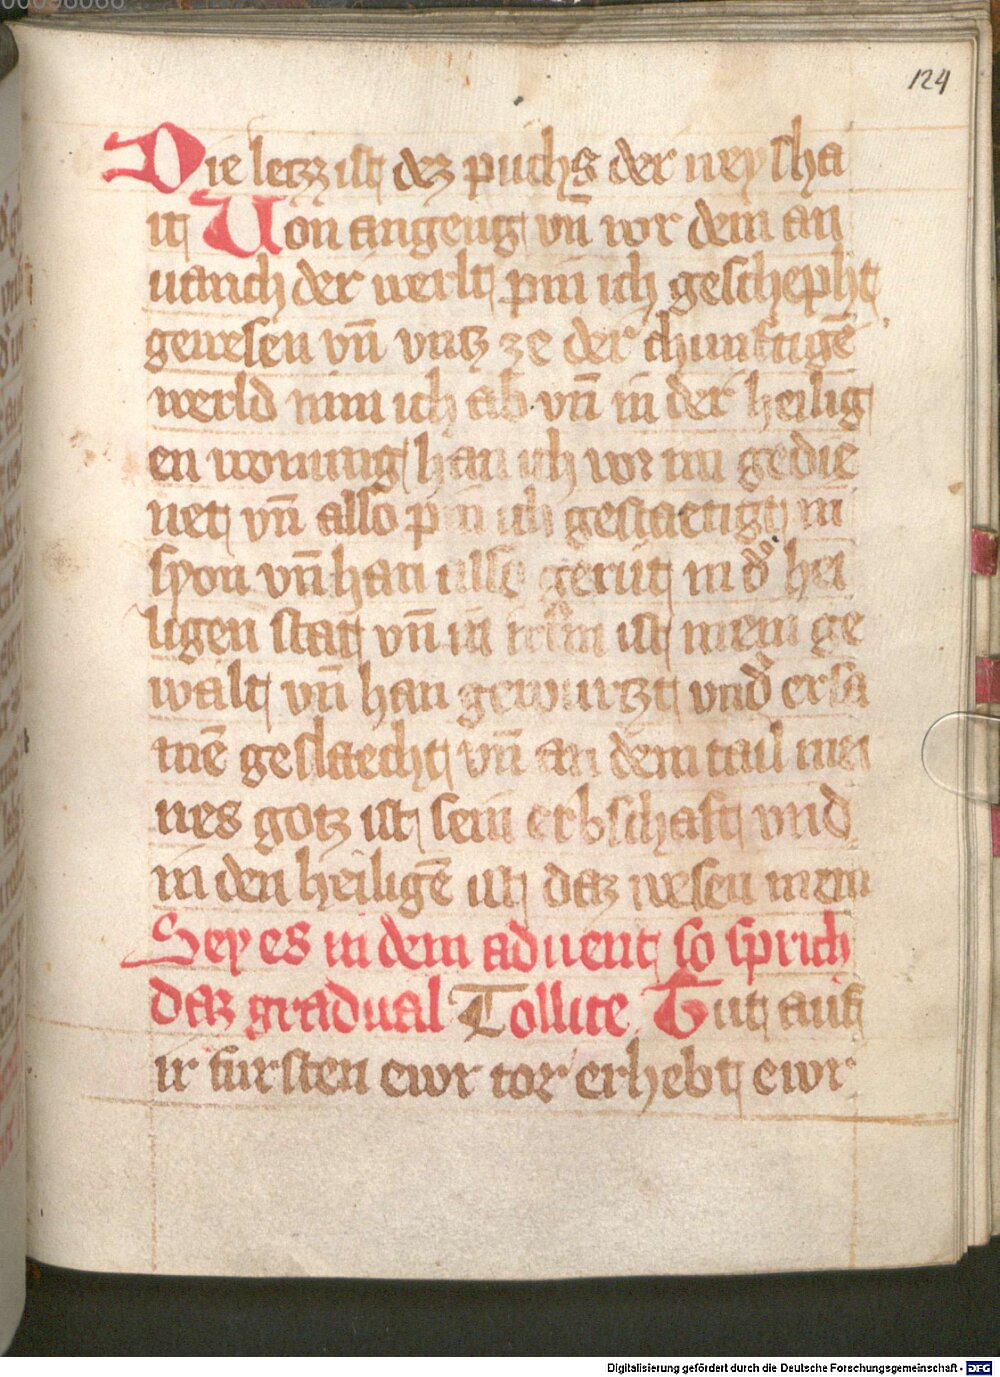 124
Die leczz ist dez puchs der weysha
it Uon angeng vn̄ vor dem an
uanch der werlt pin ich geschepht
gewesen vn̄ vntz ze der chunftigē
werld nim ich ab vn̄ in der heilig
en wonung han ich vor im gedie
net vn̄ also pin ich gestaetigt in
syon vn̄ han alse gerüt in d' hei
ligen stat vn̄ in irl'm ist mein ge
walt vn̄ han gewurtzt vnd' ersa
mē geslaecht vn̄ an dem tail mei
nes gotz ist sein erbschaft vnd
in den heiligē ist daz wesen mein
Sey es in dem aduent so sprich
daz gradual Tollite Tut auf
ir fursten ewr tor erhebt ewr
Digitalisierung gefördert durch die Deutsche Forschungsgemeinschaft - DFG